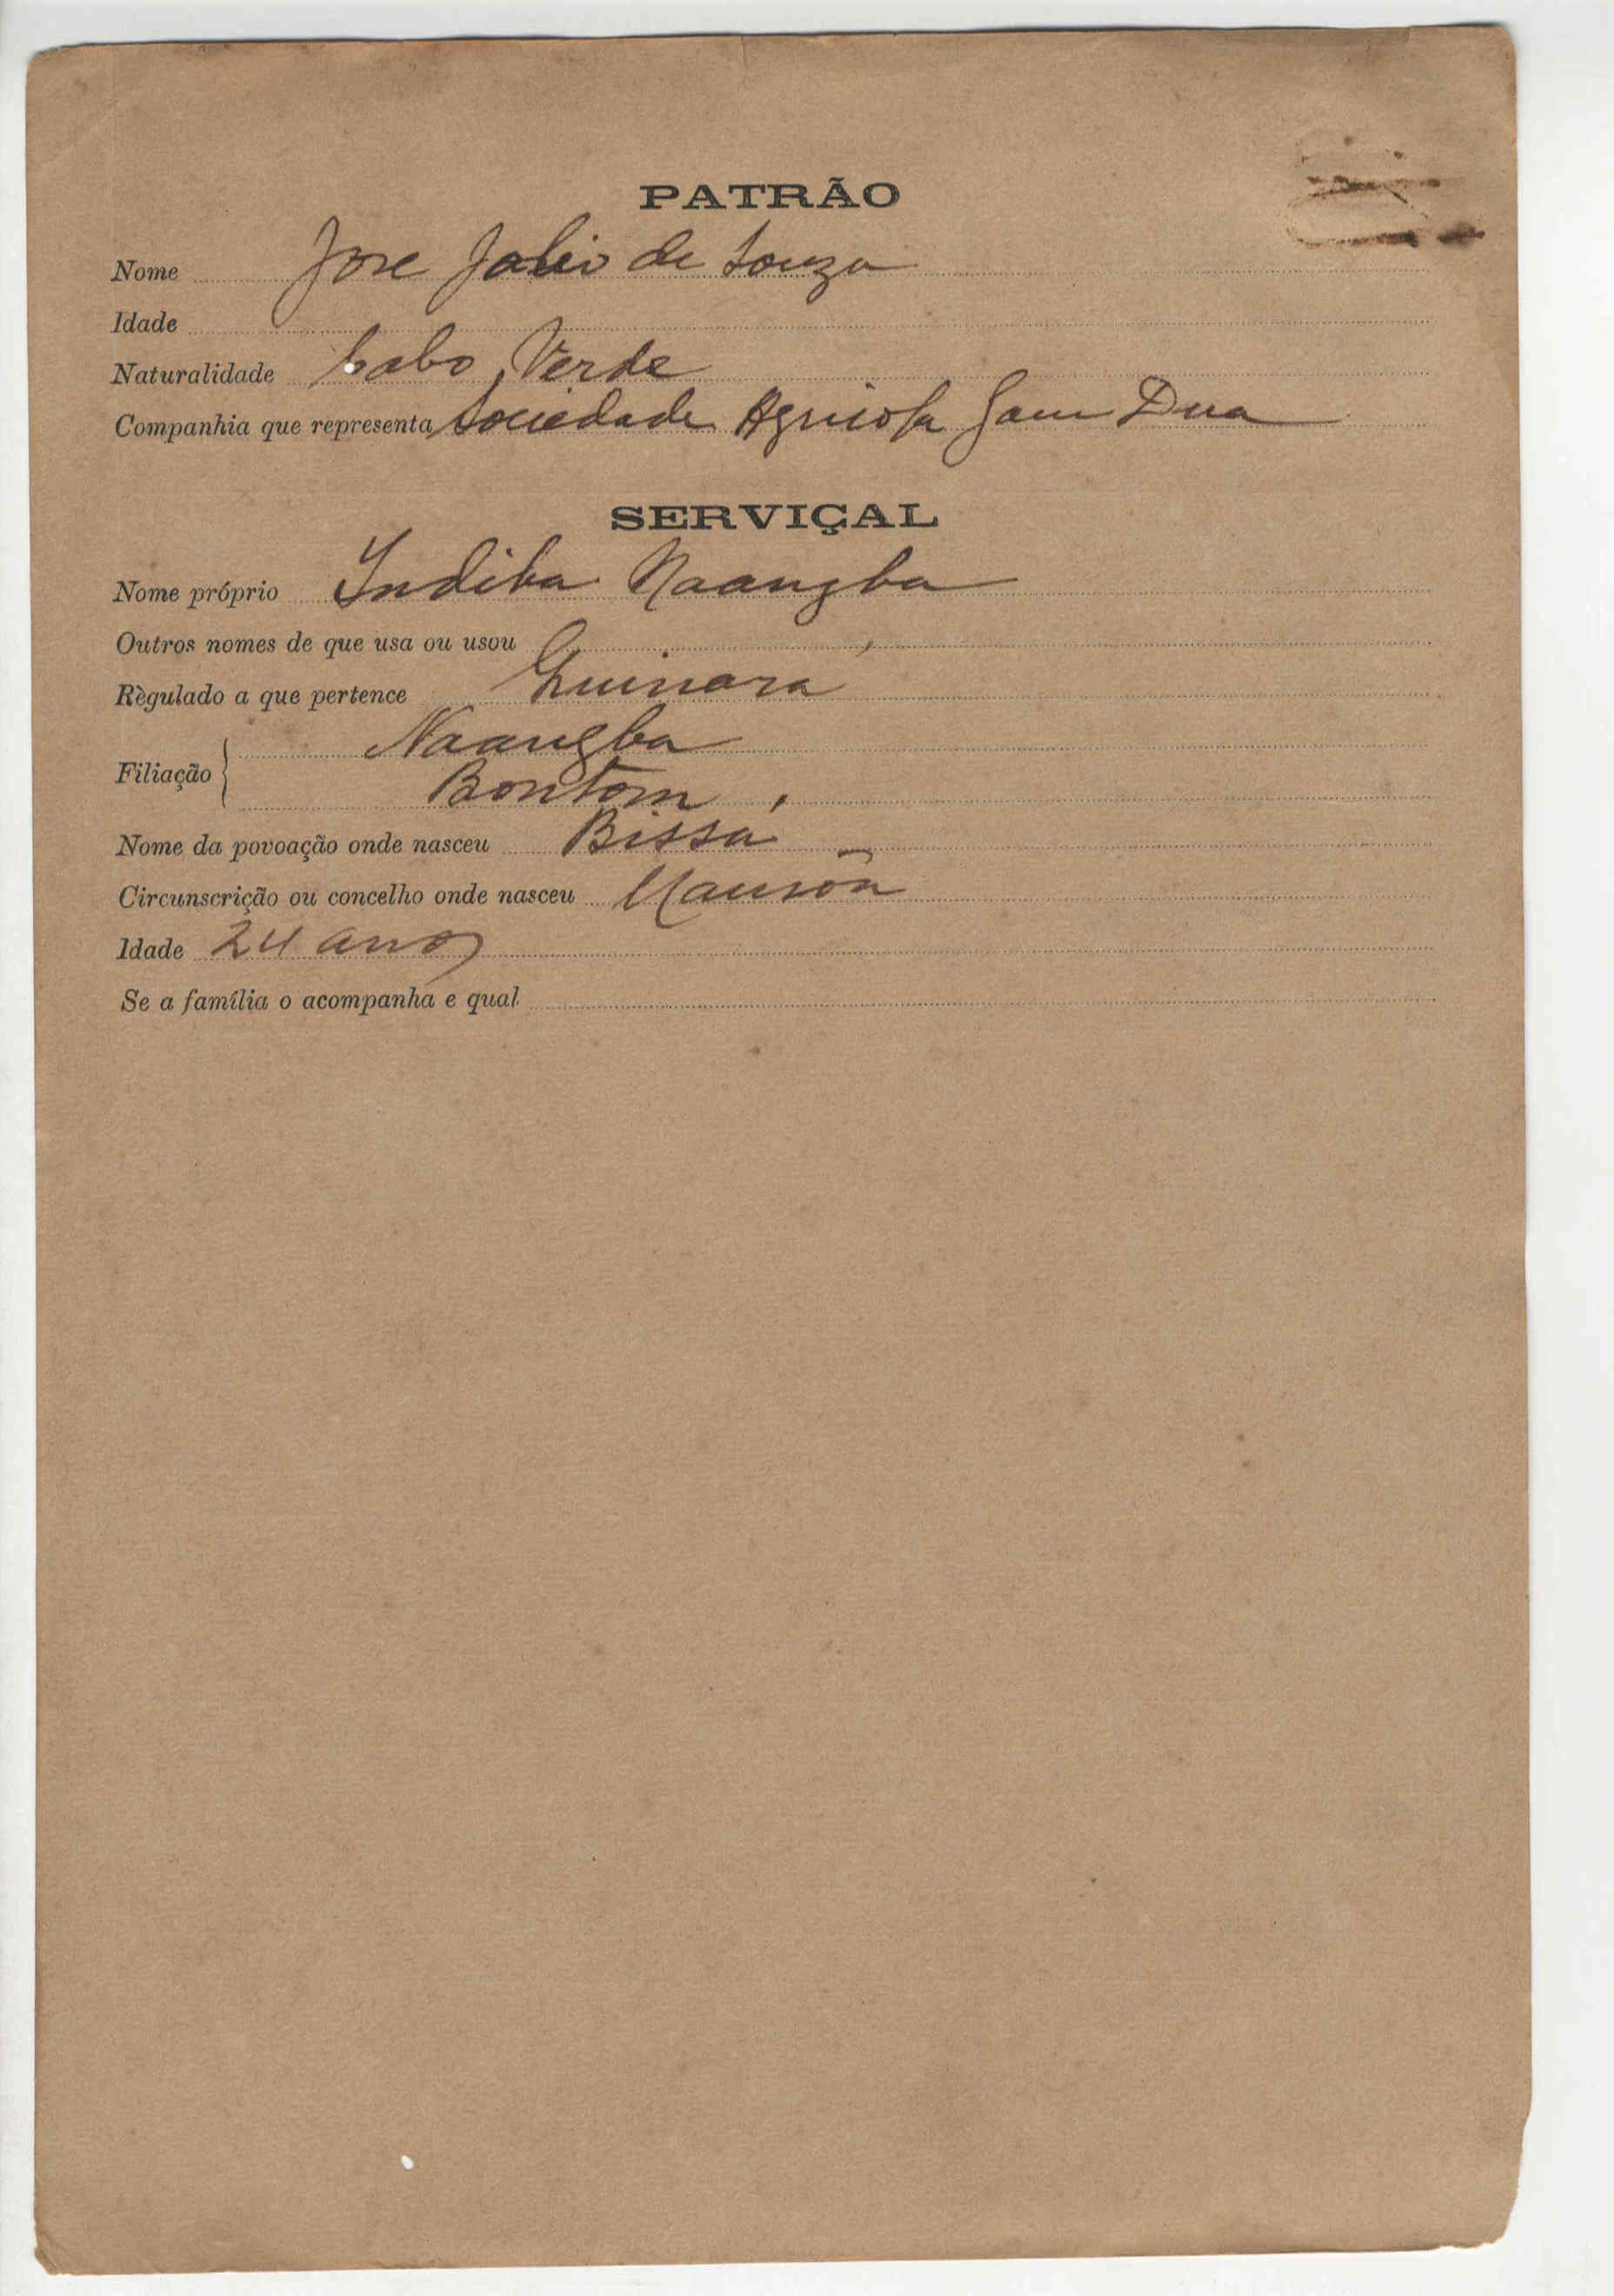 PATRÃO
Nome Jose Julio de Souza
Idade
Naturalidade Cabo Verde
Companhia que representa Sociedade Agricola Gam Dua
SERVIÇAL
Nome próprio Indiba Naangba
Outros nomes de que usa ou usou
Règulado a que pertence Guinara
Filiação Naangba
Bontom
Nome da povoação onde nasceu Bissá
Circunscrição ou concelho onde nasceu
Idade 24 anos
Se a família o acompanha e qual